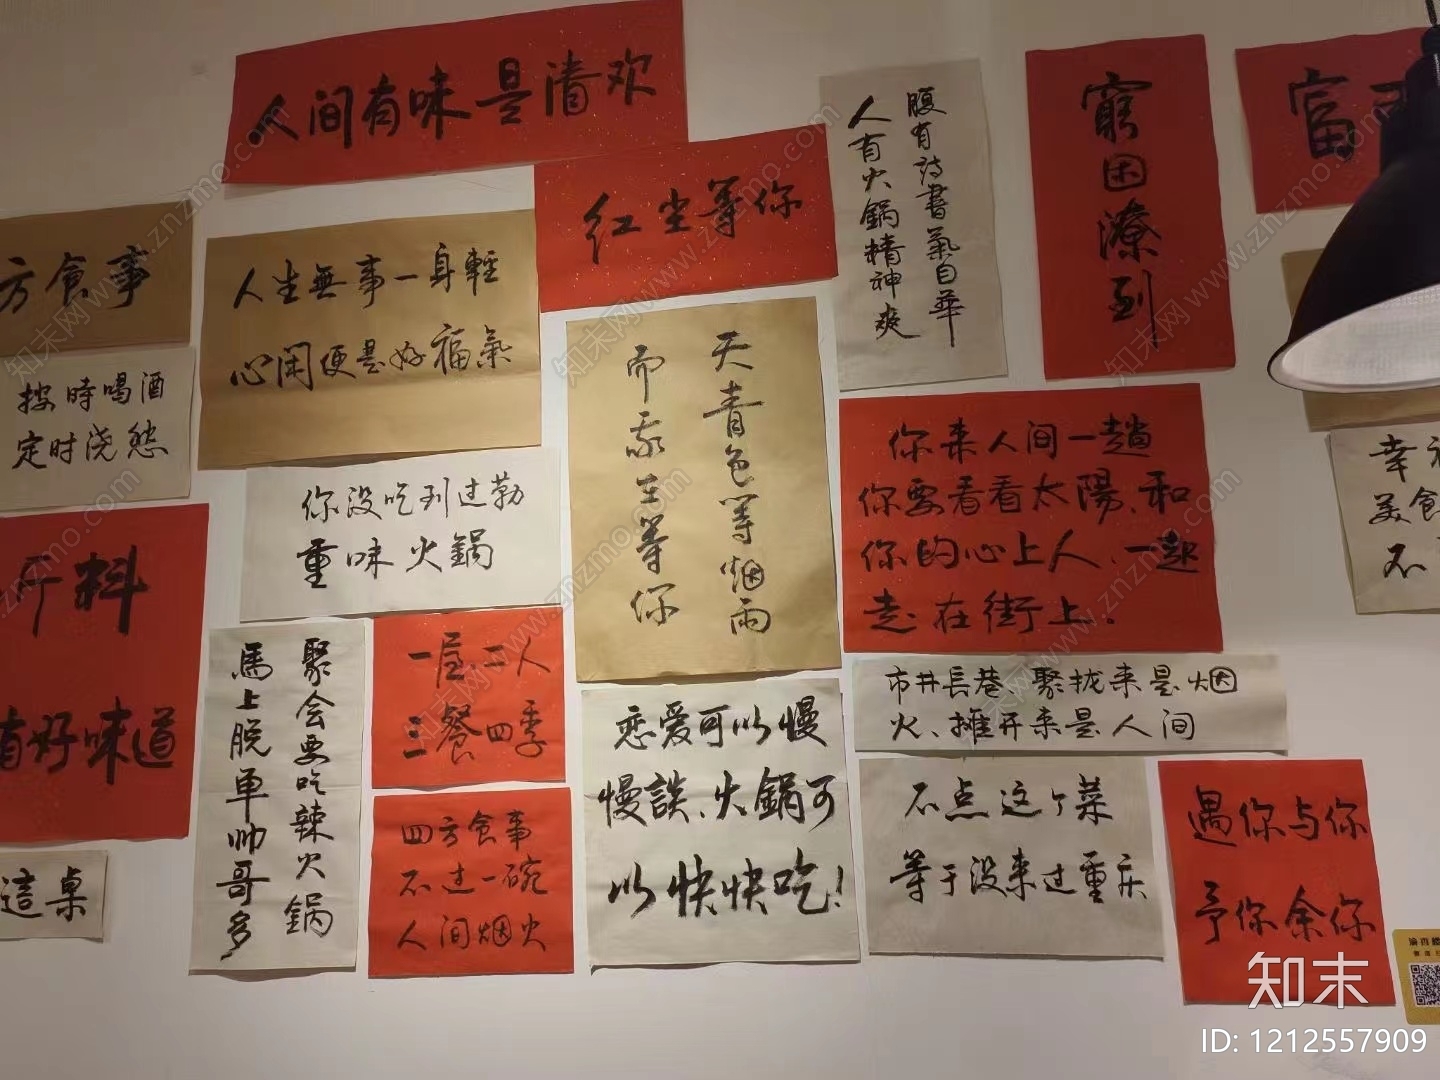 人间有味是清欢
红尘等你
腹有诗書氣自華
人有火鍋精神爽
窮困潦到
富
方食事
人生無事一身輕
心闲便是好福氣
按時喝酒
定时浇愁
天青色等烟雨
而我在等你
你来人间一趟
你要看看太陽、和
你的心上人、一起
走在街上。
幸
美食
不
你没吃到过勒
重味火鍋
料
有好味道
聚会要吃辣火锅
馬上脱单帅哥多
一屋二人
三餐四季
四方食事
不过一碗
人间烟火
恋爱可以慢
慢談、火鍋可
以快快吃!
市井長巷、聚拢来是烟
火、摊开来是人间
不点这个菜
等于没来过重庆
遇你与你
予你余你
這桌
知末
ID: 1212557909
知末网www.znzmo.com